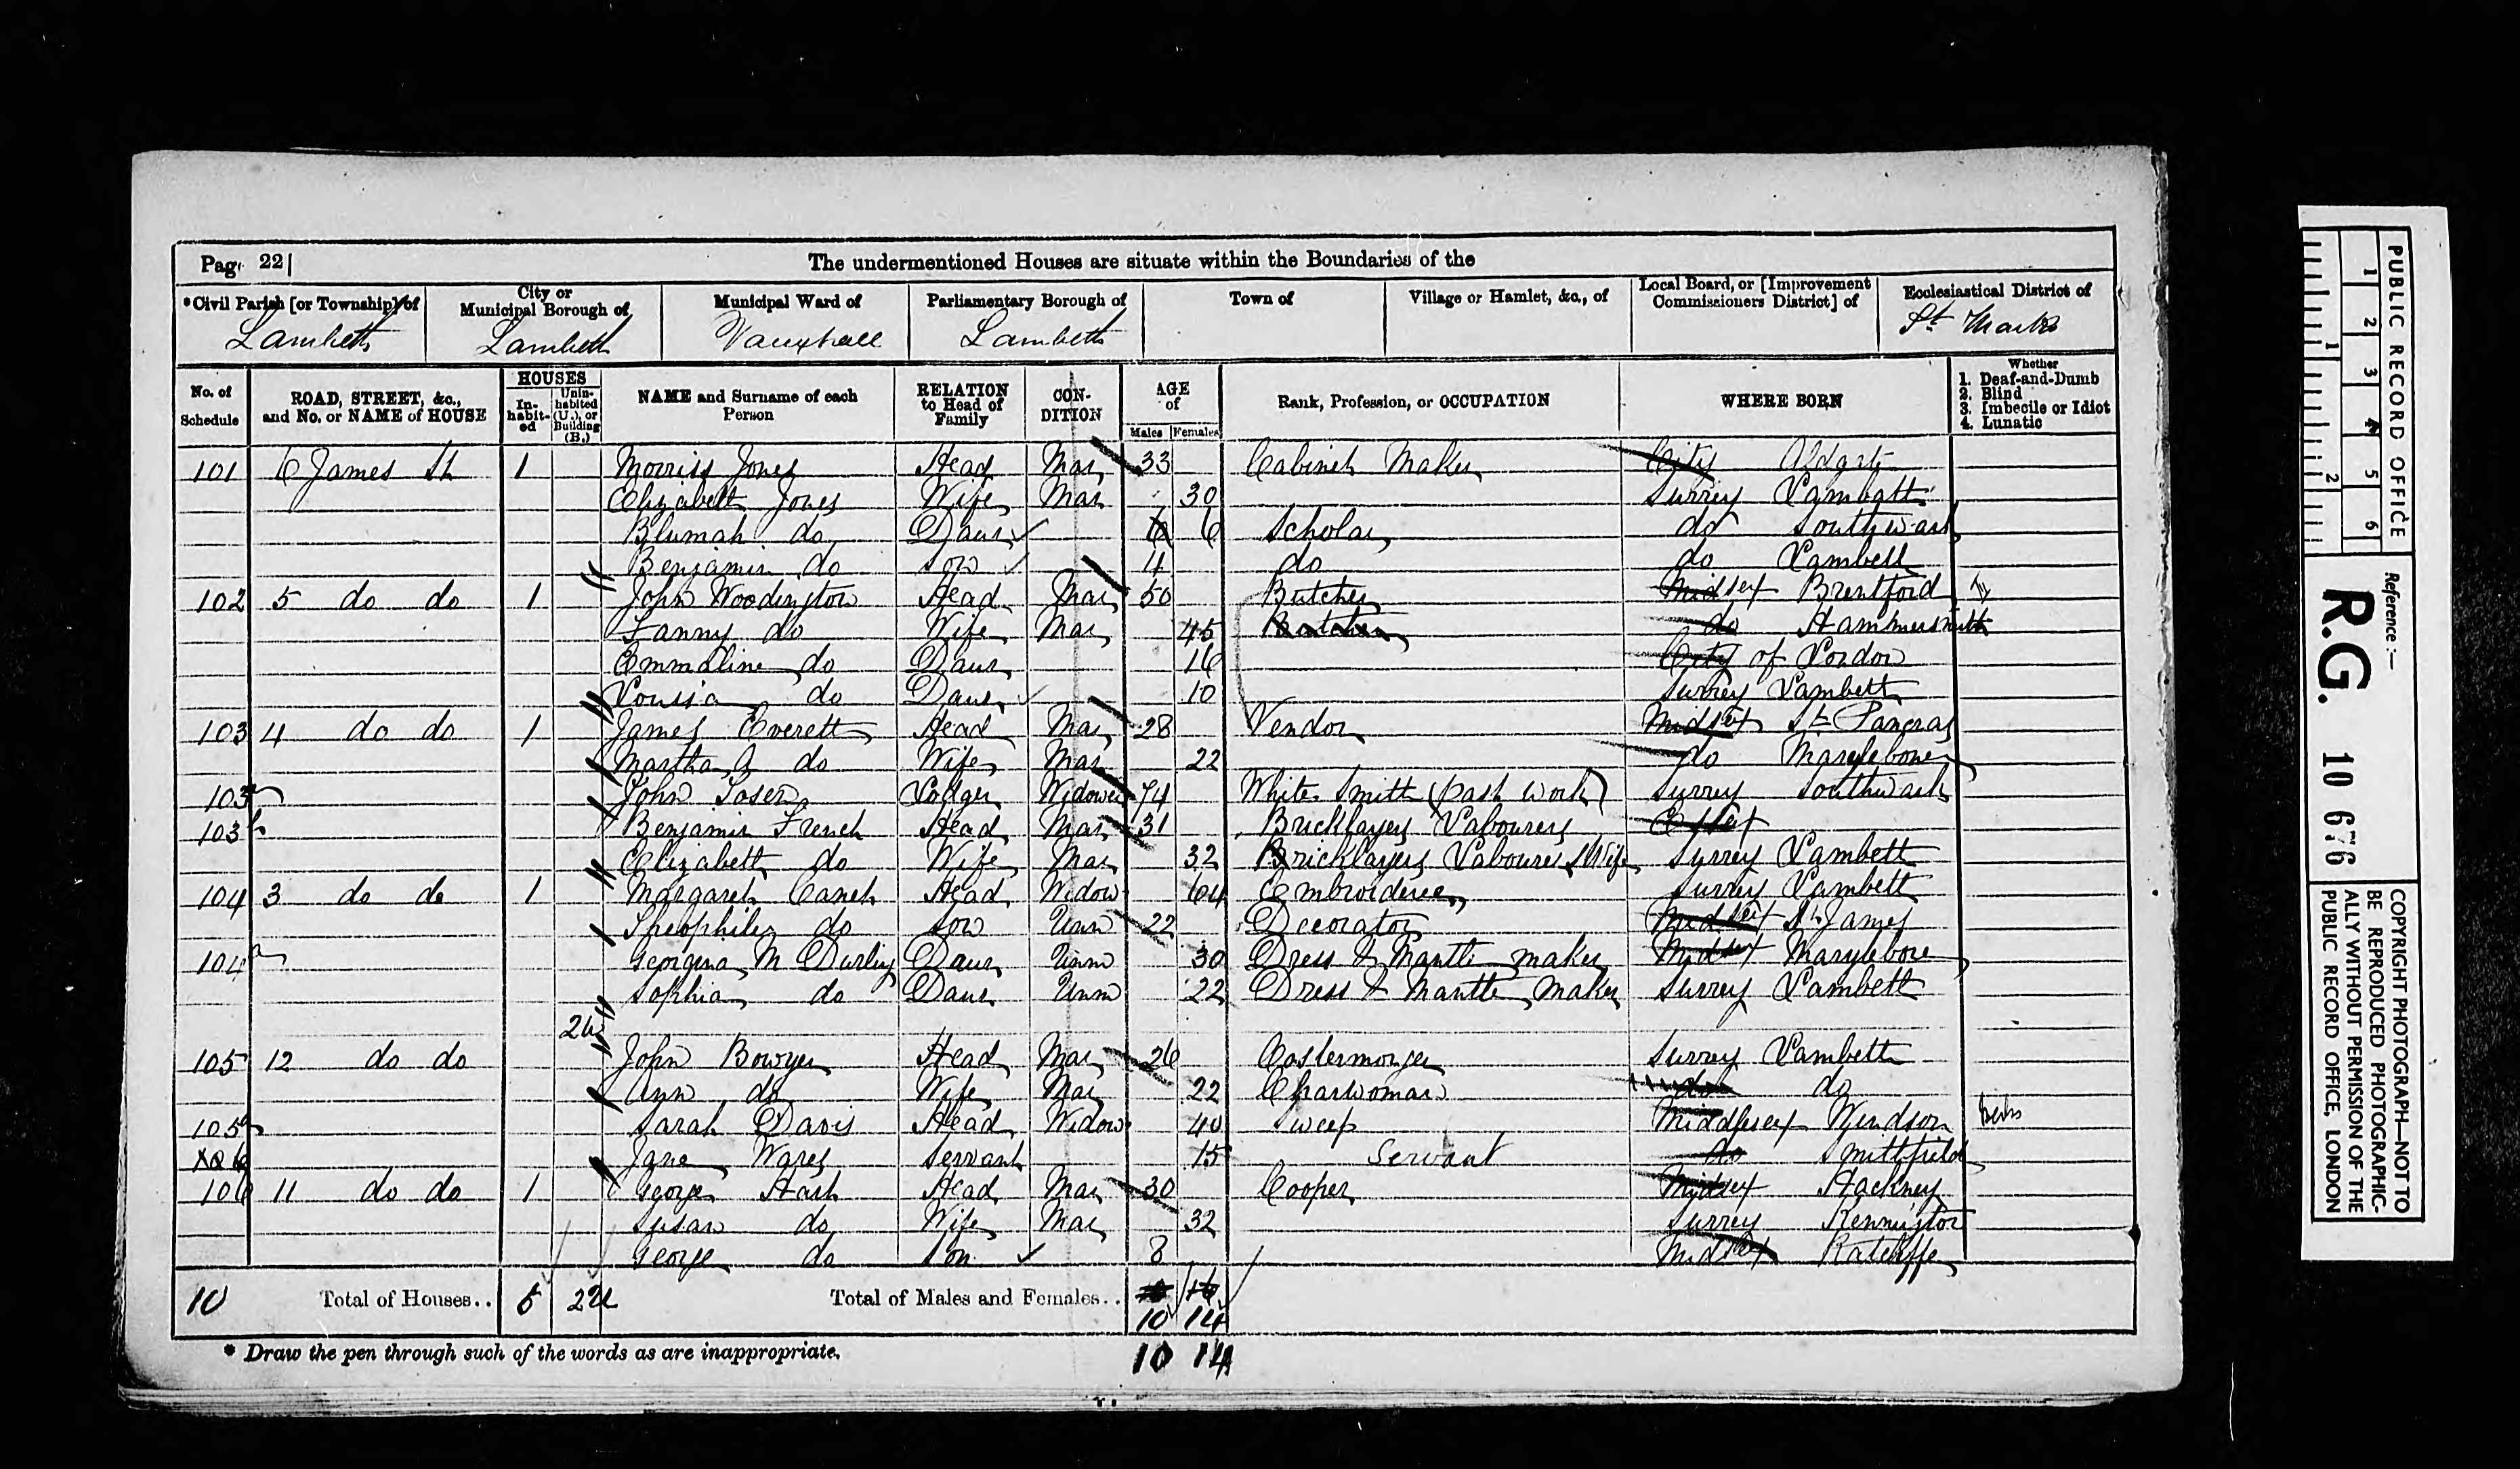 Page 22
The undermentioned Houses are situate within the Boundaries of the
*Civil Parish [or Township] of
Lambeth
City or Municipal Borough of
Lambeth
Municipal Ward of
Vauxhall
Parliamentary Borough of
Lambeth
Town of
Village or Hamlet, &c., of
Local Board, or [Improvement Commissioners District] of
Ecclesiastical District of
St Marks
No. of Schedule
ROAD, STREET, &c., and No. or NAME of HOUSE
HOUSES
In-habit-ed
Unin-habited (U.), or Building (B.)
NAME and Surname of each Person
RELATION to Head of Family
CON-DITION
AGE of
Males Females
Rank, Profession, or OCCUPATION
WHERE BORN
Whether
1. Deaf-and-Dumb
2. Blind
3. Imbecile or Idiot
4. Lunatic
101 6 James St 1 Morriss Jones Head Mar 33 Cabinet Maker City Aldgate
Elizabeth Jones Wife Mar 30 Surrey Lambeth
Blumah do Daur 6 6 Scholar do Southwark
Benjamin do Son 4 do do Lambeth
102 5 do do 1 John Woodington Head Mar 50 Butcher Midsex Brentford
Fanny do Wife Mar 45 Butcher do Hammersmith
Emmaline do Daur 16 City of London
Louisa do Daur 10 Surrey Lambeth
103 4 do do 1 James Everett Head Mar 28 Vendor Midsex St Pancras
Martha A do Wife Mar 22 do Marylebone
103a John Loser Lodger Widower 74 White Smith (past work) Surrey Southwark
103b Benjamin French Head Mar 31 Bricklayers Labourers Essex
Elizabeth do Wife Mar 32 Bricklayers Labourers Wife Surrey Lambeth
104 3 do do 1 Margaret Head Widow 64 Embroiderer Surrey Lambeth
do Son Unm 22 Decorator Midsex St James
104a Georgina M Durling Daur Unm 30 Dress & Mantle maker Midsex Marylebone
Sophia do Daur Unm 22 Dress & Mantle Maker Surrey Lambeth
105 12 do do John Bowyer Head Mar 26 Costermonger Surrey Lambeth
Ann do Wife Mar 22 Charwoman do do
105a Sarah Davis Head Widow 40 Sweep Middlesex Windson Berks
106 Jane Wares Servant 15 Servant do Smithfield
106 11 do do 1 George Hart Head Mar 30 Cooper Midsex Hackney
Susan do Wife Mar 32 Surrey Kennington
George do Son 8 Midsex Ratcliffe
10 Total of Houses.. 5 Total of Males and Females..
10 14
* Draw the pen through such of the words as are inappropriate.
10 14
PUBLIC RECORD OFFICE
1 2 3 4 5 6
1 2
Reference:—
R.G. 10 676
COPYRIGHT PHOTOGRAPH—NOT TO
BE REPRODUCED PHOTOGRAPHIC-
ALLY WITHOUT PERMISSION OF THE
PUBLIC RECORD OFFICE, LONDON